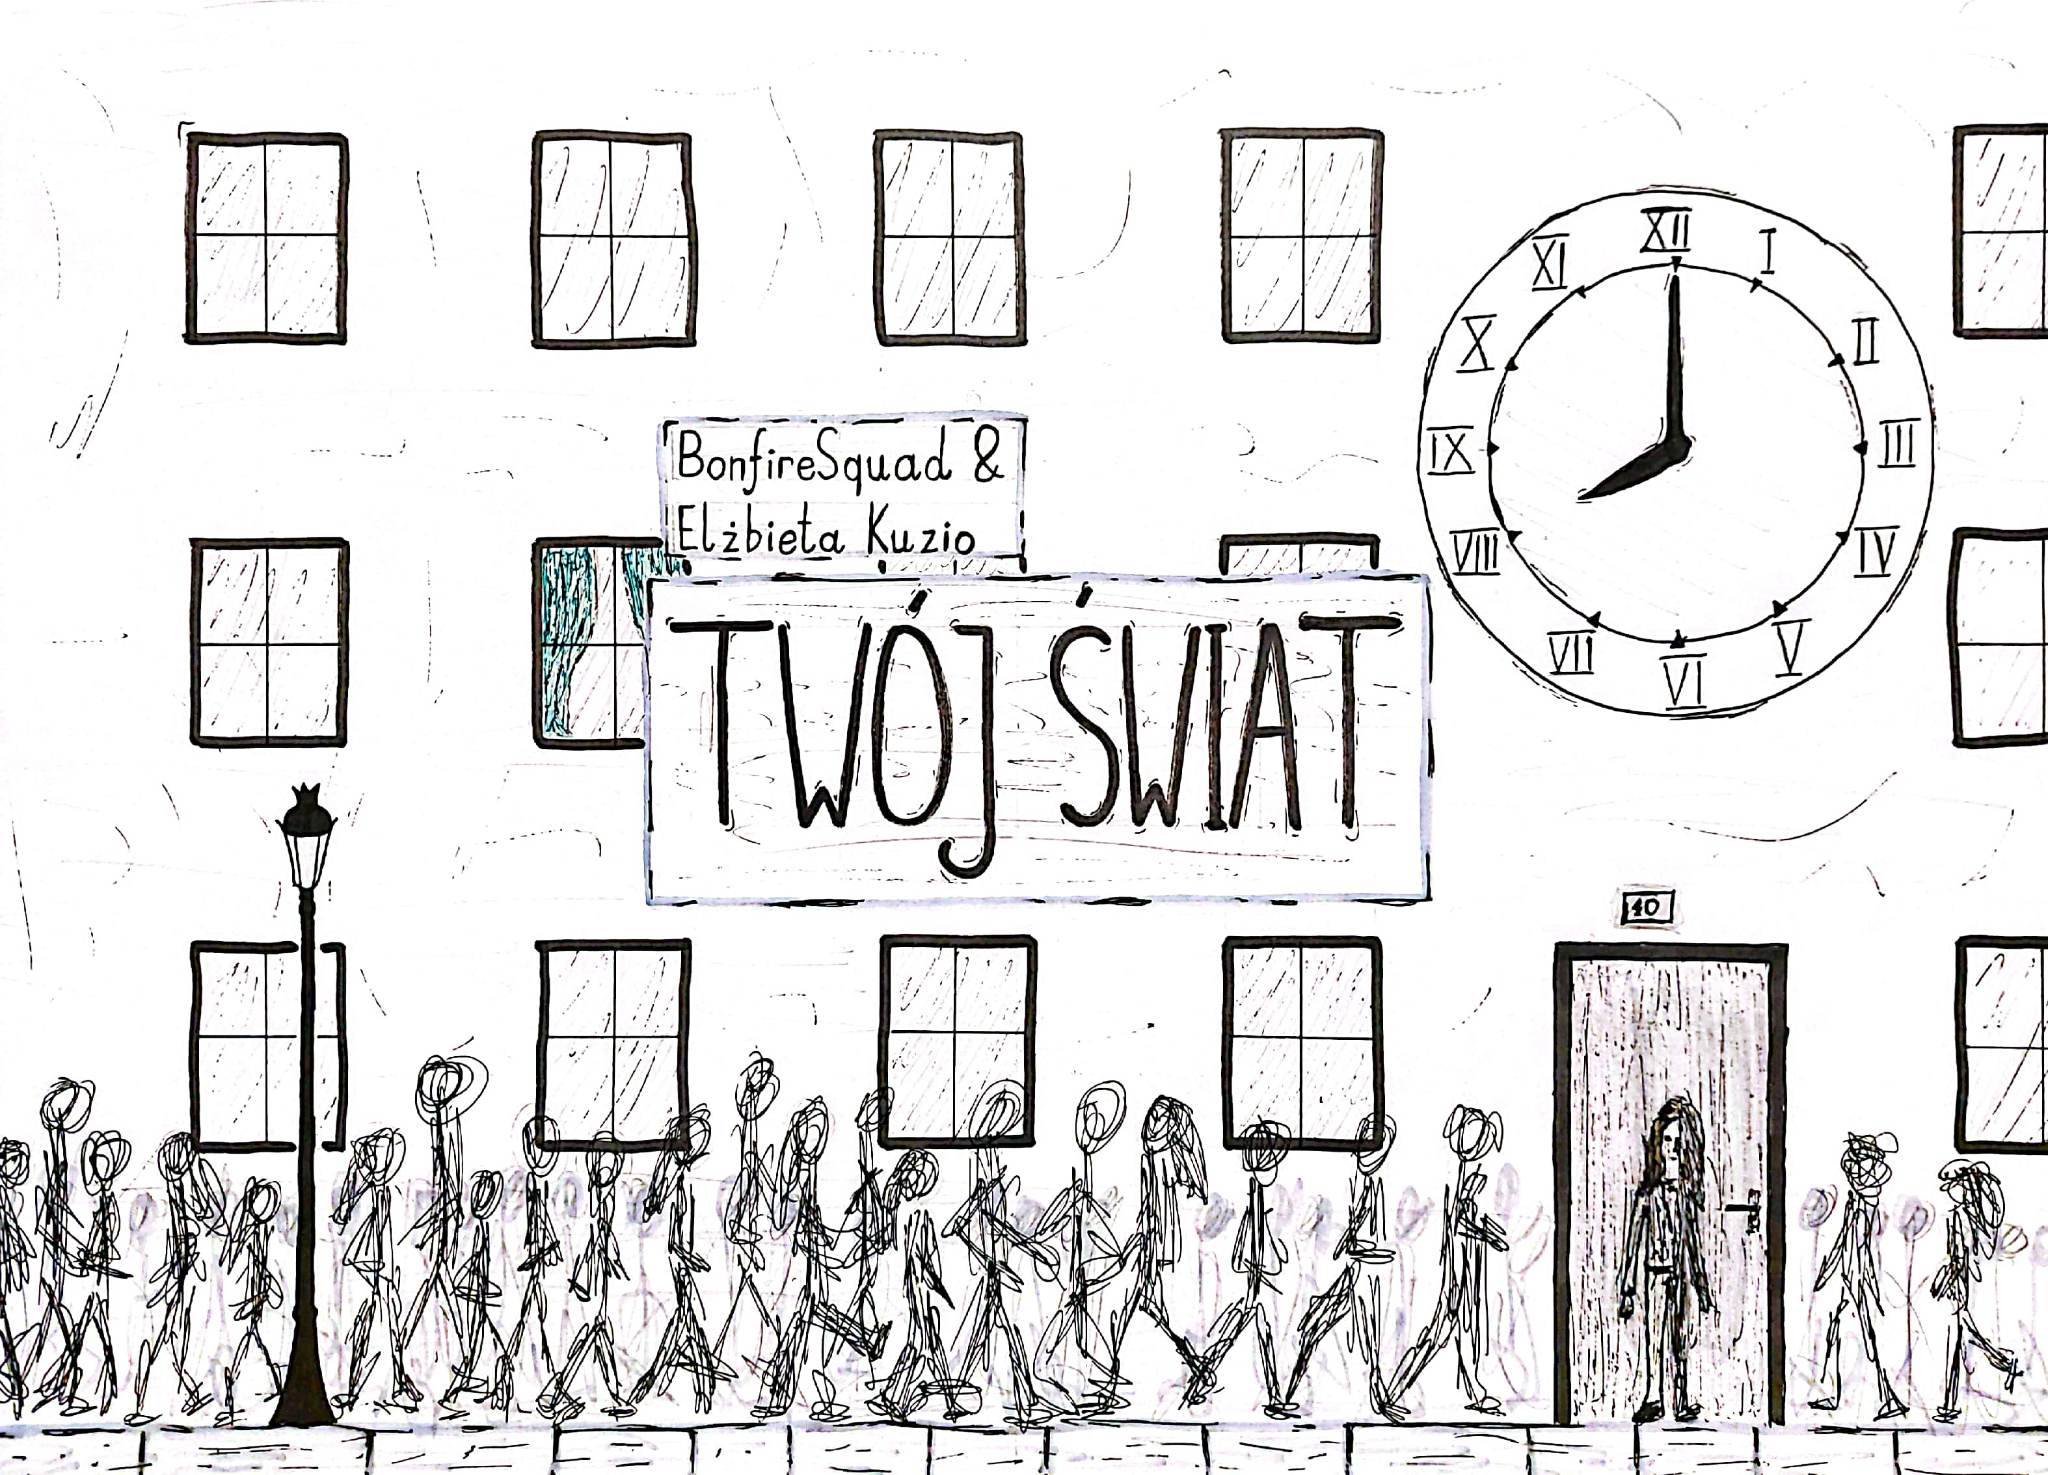 BonfireSquad &
Elżbieta Kuzio
TWÓJ ŚWIAT
XII
I
II
III
IV
V
VI
VII
VIII
IX
X
XI
40